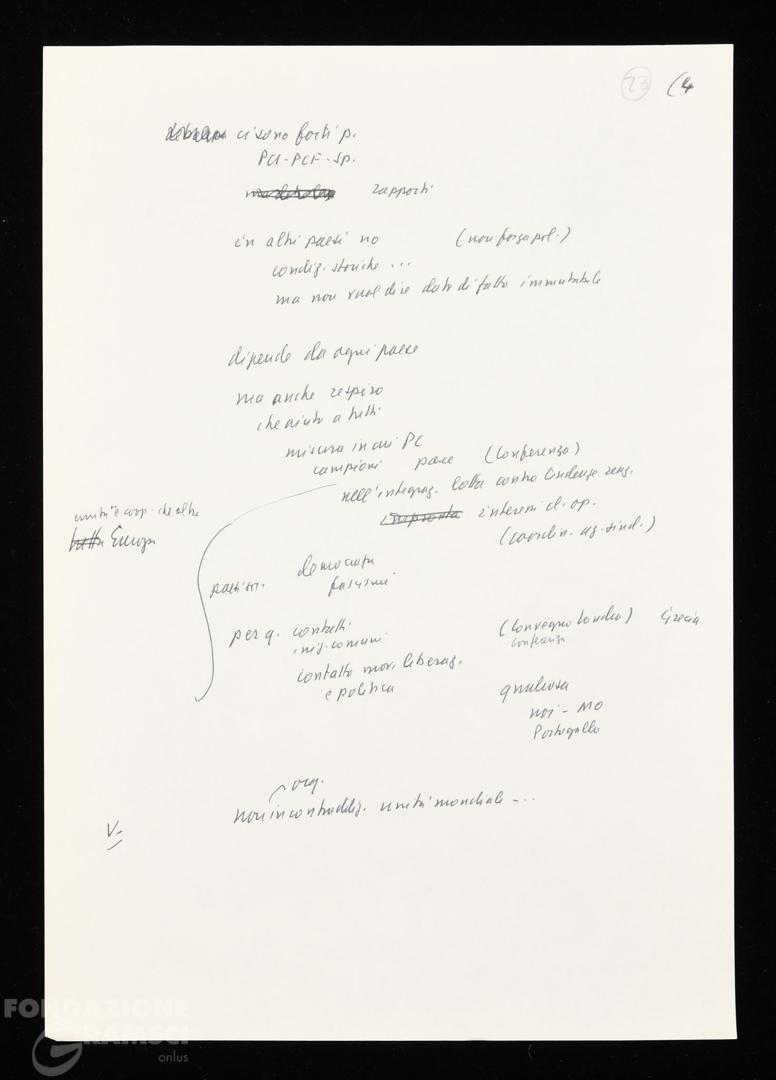 23 (4
ci sono forti p.
PCI-PCF-Sp.
rapporti
in altri paesi no (non forza pol.)
condiz. storiche ...
ma non vuol dire dato di fatto immutabile
dipende da ogni paese
ma anche respiro
che aiuto a tutti
misura in cui PC
campioni pace (conferenza)
nell'integraz. lotta contro tendenze reaz.
impronta interessi cl. op.
(coordin. az. sind.)
unità e coop. che altre
tutta Europa
democratia
fascismi
per q. contatti (Convegno Londra) Grecia
iniz. comuni conferenza
contatto mov. liberaz.
e politica qualcosa
noi - MO
Portogallo
org.
non in contraddiz. unità mondiale - ...
V=
FONDAZIONE
GRAMSCI
onlus